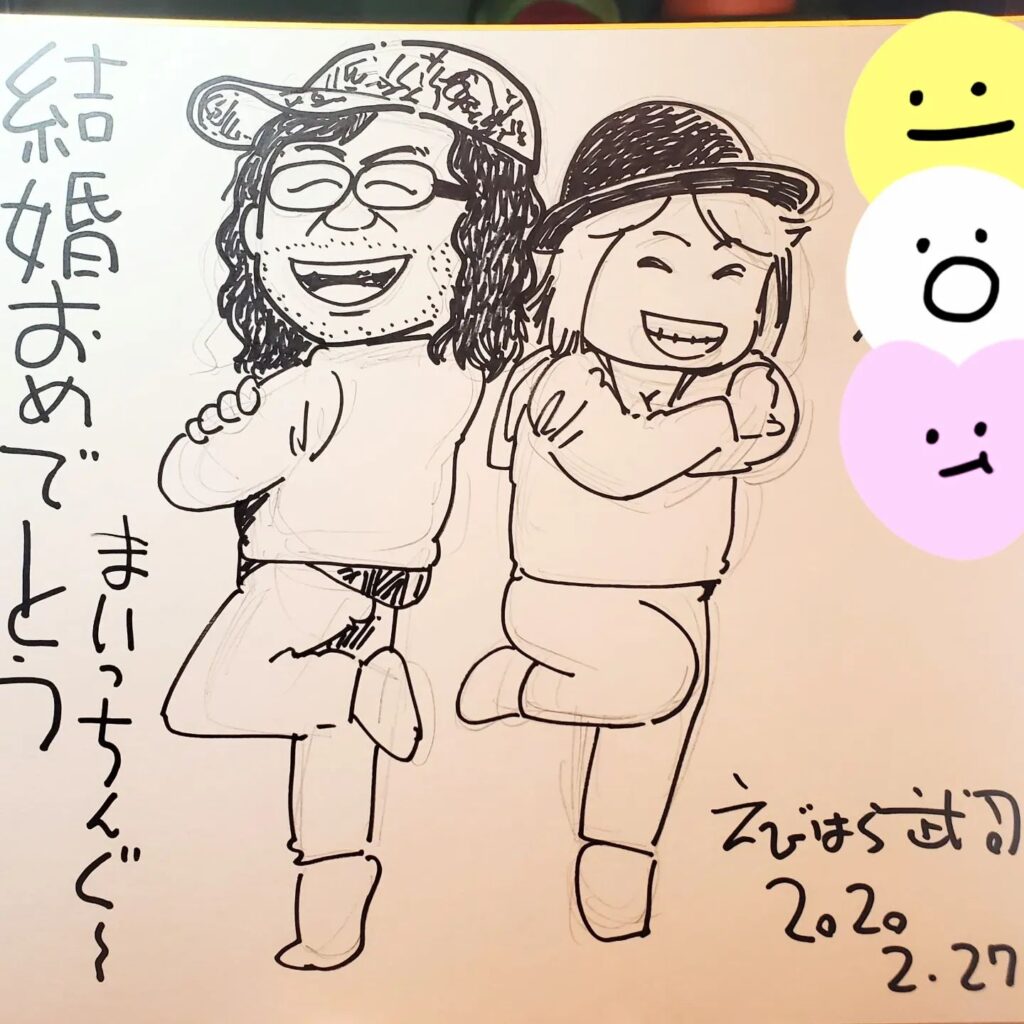 結婚おめでとう
まいっちんぐ〜
えびはら武司
2020
2.27